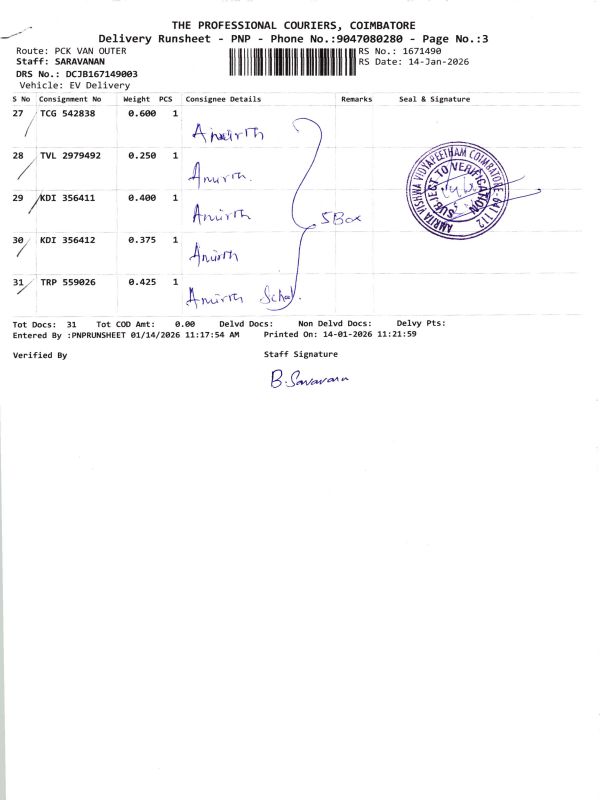 THE PROFESSIONAL COURIERS, COIMBATORE
Delivery Runsheet - PNP - Phone No.:9047080280 - Page No.:3
Route: PCK VAN OUTER RS No.: 1671490
Staff: SARAVANAN RS Date: 14-Jan-2026
DRS No.: DCJB167149003
Vehicle: EV Delivery
S No Consignment No Weight PCS Consignee Details Remarks Seal & Signature
27 TCG 542838 0.600 1
28 TVL 2979492 0.250 1
29 KDI 356411 0.400 1
5 Box
30 KDI 356412 0.375 1
31 TRP 559026 0.425 1
AMRITA VISHWA VIDYAPEETHAM COIMBATORE - 641 112
SUBJECT TO VERIFICATION
Tot Docs: 31 Tot COD Amt: 0.00 Delvd Docs: Non Delvd Docs: Delvy Pts:
Entered By :PNPRUNSHEET 01/14/2026 11:17:54 AM Printed On: 14-01-2026 11:21:59
Verified By Staff Signature
B. Saravana